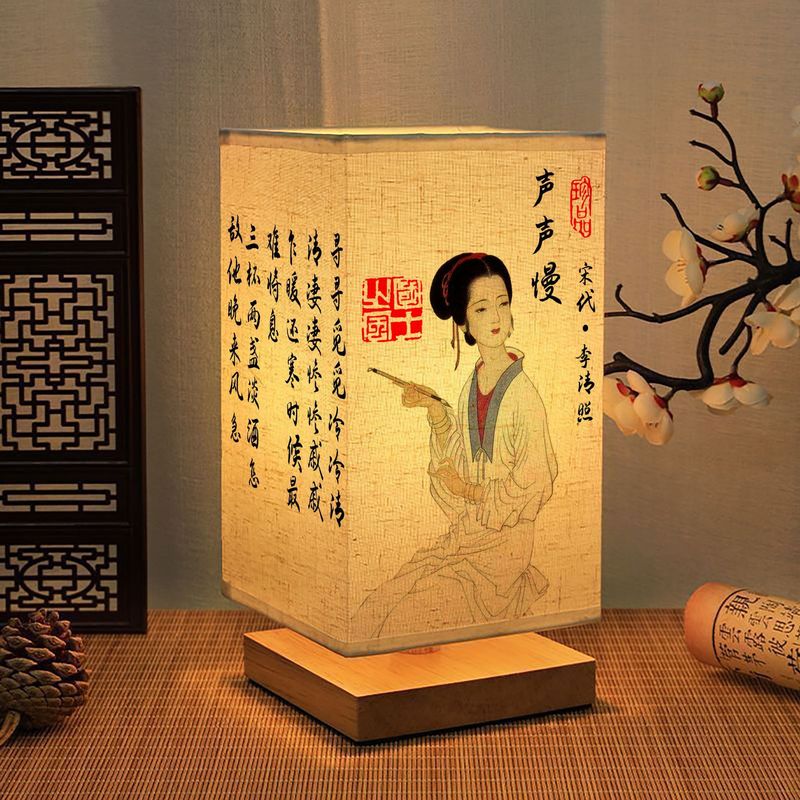 珍品
声声慢
宋代·李清照
寻寻觅觅冷冷清
清凄凄惨惨戚戚
乍暖还寒时候最
难将息
三杯两盏淡酒怎
敌他晚来风急